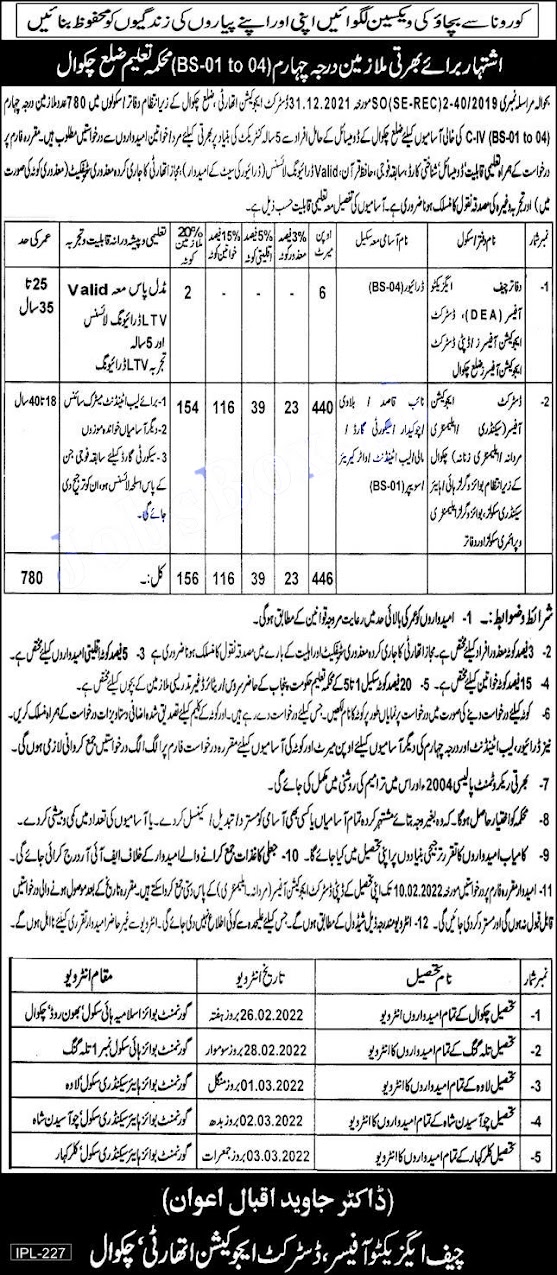 کورونا سے بچاؤ کی ویکسین لگوائیں اپنی اور اپنے پیاروں کی زندگیوں کو محفوظ بنائیں
اشتہار برائے بھرتی ملازمین درجہ چہارم (BS-01 to 04) محکمہ تعلیم ضلع چکوال
بحوالہ مراسلہ نمبری SO(SE-REC)2-40/2019 مورخہ 31.12.2021 ڈسٹرکٹ ایجوکیشن اتھارٹی، ضلع چکوال کے زیر انتظام دفاتر اسکولوں میں 780 عدد ملازمین درجہ چہارم
C-IV (BS-01 to 04) کی خالی آسامیوں کیلئے ضلع چکوال کے ڈومیسائل کے حامل افراد سے 5 سالہ کنٹریکٹ کی بنیاد پر بھرتی کیلئے مرد/خواتین امیدواروں سے درخواستیں مطلوب ہیں۔ مقررہ فارم پر
درخواست کے ہمراہ تعلیمی قابلیت، ڈومیسائل، شناختی کارڈ، سابقہ فوجی، حافظ قرآن، Valid ڈرائیونگ لائسنس (ڈرائیور کی سیٹ کے امیدوار)، مجاز اتھارٹی کا جاری کردہ معذوری سرٹیفکیٹ (معذوری کوٹہ کی صورت
میں) اور تجربہ وغیرہ کی مصدقہ نقول کا منسلک ہونا ضروری ہے۔ آسامیوں کی تفصیل معہ تعلیمی قابلیت حسب ذیل ہے۔
نمبر شمار نام دفتر/سکول نام آسامی معہ سکیل اوپن میرٹ 3% فیصد معذور کوٹہ 5% فیصد اقلیتی کوٹہ 15% فیصد خواتین کوٹہ 20% ملازمین کوٹہ تعلیمی و پیشہ ورانہ قابلیت و تجربہ عمر کی حد
1- دفاتر چیف ایگزیکٹو ڈرائیور (BS-04) 6 - - - 2 مڈل پاس معہ Valid 25 تا
آفیسر (DEA)، ڈسٹرکٹ LTV ڈرائیونگ لائسنس 35 سال
ایجوکیشن آفیسرز/ڈپٹی ڈسٹرکٹ اور 5 سالہ
ایجوکیشن آفیسرز ضلع چکوال تجربہ LTV ڈرائیونگ
2- ڈسٹرکٹ ایجوکیشن نائب قاصد/بیلدار 440 23 39 116 154 1- برائے لیب اٹینڈنٹ میٹرک سائنس 18 تا 40 سال
آفیسر (سیکنڈری/ایلیمنٹری /چوکیدار/سیکورٹی گارڈ/ 2- دیگر آسامیاں خواندہ موزوں
مردانہ/ایلیمنٹری زنانہ) چکوال مالی/لیب اٹینڈنٹ/واٹر کیریئر 3- سیکورٹی گارڈ کیلئے سابقہ فوجی جن
کے زیر انتظام بوائز و گرلز ہائی/ہائیر /سویپر (BS-01) کے پاس اسلحہ لائسنس ہو، ان کو ترجیح دی
سیکنڈری سکولز بوائز و گرلز ایلیمنٹری جائے گی۔
و پرائمری سکولز اور دفاتر
446 23 39 116 156 کل:- 780
شرائط و ضوابط:۔ 1- امیدواروں کو عمر کی بالائی حد میں رعایت مروجہ قوانین کے مطابق ہوگی۔
2- 3 فیصد کوٹہ معذور افراد کیلئے مختص ہے۔ مجاز اتھارٹی کا جاری کردہ معذوری سرٹیفکیٹ اور اہلیت کے بارے میں مصدقہ نقول کا منسلک ہونا ضروری ہے 3- 5 فیصد کوٹہ اقلیتی امیدواروں کیلئے مختص ہے۔
4- 15 فیصد کوٹہ خواتین کیلئے مختص ہے۔ 5- 20 فیصد کوٹہ سکیل 1 تا 5 کے محکمہ تعلیم حکومت پنجاب کے حاضر سروس اور ریٹائرڈ غیر تدریسی ملازمین کے بچوں کیلئے مختص ہے۔
6- کوٹہ کیلئے درخواست دینے کی صورت میں درخواست پر نمایاں طور پر کوٹہ کا نام لکھیں۔ جس کیلئے درخواست دے رہے ہیں۔ اور کوٹہ کے کلیم کیلئے تصدیق شدہ اضافی دستاویزات درخواست کے ہمراہ منسلک کریں۔
نیز ڈرائیور، لیب اٹینڈنٹ اور درجہ چہارم کی دیگر آسامیوں کیلئے اوپن میرٹ اور کوٹہ کی آسامیوں کیلئے مقررہ درخواست فارم پر الگ الگ درخواستیں جمع کروانی لازمی ہوں گی۔
7- بھرتی ریکروٹمنٹ پالیسی 2004ء اور اس میں ترامیم کی روشنی میں مکمل کی جائے گی۔
8- محکمہ کو اختیار حاصل ہوگا۔ کہ وہ بغیر وجہ بتائے مشتہر کردہ تمام آسامیاں یا کسی بھی آسامی کو مسترد/تبدیل/کینسل کر دے۔ یا آسامیوں کی تعداد میں کمی و بیشی کر دے۔
9- کامیاب امیدواروں کا تقرر ترجیحی بنیادوں پر اپنی تحصیل میں کیا جائے گا۔ 10- جعلی کاغذات جمع کرانے والے امیدوار کے خلاف ایف آئی آر درج کرائی جائے گی۔
11- امیدوار مقررہ فارم پر درخواستیں مورخہ 10.02.2022 تک اپنی تحصیل کے ڈپٹی ڈسٹرکٹ ایجوکیشن آفیسر (مردانہ۔ ایلیمنٹری) کے پاس دستی جمع کروا سکتے ہیں۔ مقررہ تاریخ کے بعد موصول ہونے والی درخواستیں
قابل قبول نہ ہوں گی اور مسترد کر دی جائیں گی۔ 12- انٹرویو مندرجہ ذیل شیڈول کے مطابق ہوں گے۔ جس کیلئے علیحدہ سے کوئی اطلاع نہیں دی جائے گی۔ انٹرویو سے غیر حاضر امیدوار تقرری کیلئے نااہل ہوں گے۔
نمبر شمار نام تحصیل تاریخ انٹرویو مقام انٹرویو
1- تحصیل چکوال کے تمام امیدواروں انٹرویو 26.02.2022 بروز ہفتہ گورنمنٹ بوائز اسلامیہ ہائی سکول، بھون روڈ، چکوال
2- تحصیل تلہ گنگ کے تمام امیدواروں کا انٹرویو 28.02.2022 بروز سوموار گورنمنٹ بوائز ہائی سکول نمبر 1 تلہ گنگ
3- تحصیل لاوہ کے تمام امیدواروں کا انٹرویو 01.03.2022 بروز منگل گورنمنٹ بوائز ہائیر سیکنڈری سکول، لاوہ
4- تحصیل چوآسیدن شاہ کے تمام امیدواروں کا انٹرویو 02.03.2022 بروز بدھ گورنمنٹ بوائز ہائیر سیکنڈری سکول، چوآسیدن شاہ
5- تحصیل کلرکہار کے تمام امیدواروں کا انٹرویو 03.03.2022 بروز جمعرات گورنمنٹ بوائز ہائیر سیکنڈری سکول، کلرکہار
(ڈاکٹر جاوید اقبال اعوان)
چیف ایگزیکٹو آفیسر، ڈسٹرکٹ ایجوکیشن اتھارٹی، چکوال
IPL-227